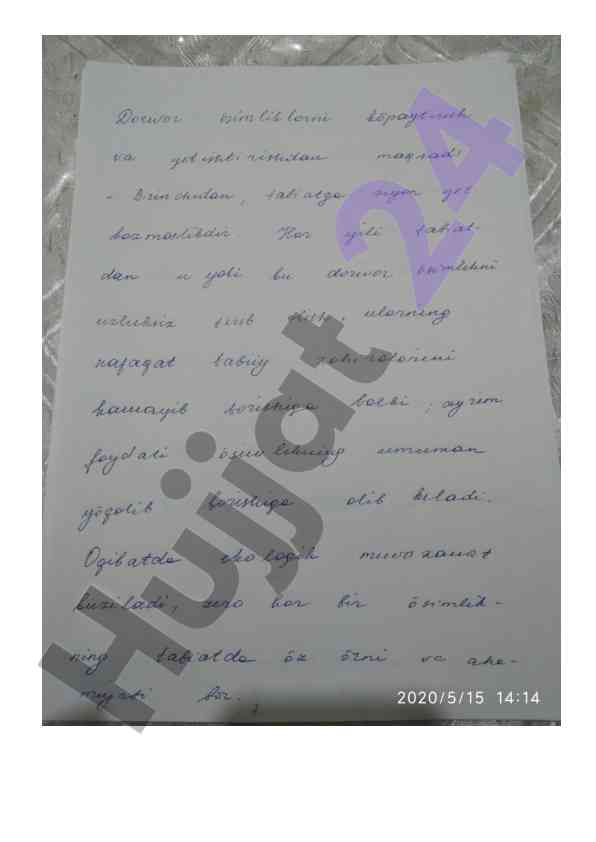 Dorivor ösimliklarni köpaytirish
va yetishtirishdan maqsad:
- Birinchidan, tabiatga ziyon yet
kazmaslikdir. Har yili tabiat-
dan u yoki bu dorivor ösimlikni
uzluksiz terib olish, ularning
nafaqat tabiiy zahiralarini
kamayib borishiga balki, ayrim
foydali ösimlikning umuman
yöqolib borishiga olib keladi.
Oqibatda ekologik muvozanat
buziladi, zero har bir ösimlik-
ning tabiatda öz örni va aha-
miyati bor.
7
2020/5/15 14:14
Hujjat 24